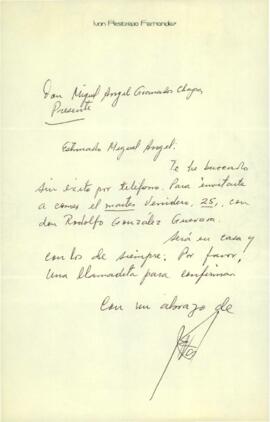 Iván Restrepo Fernández
Don Miguel Angel Granados Chapa,
Presente
Estimado Miguel Angel:
Te he buscado
sin éxito por teléfono. Para invitarte
a comer el martes venidero, 25, con
don Rodolfo González Guevara.
Será en casa y
con los de siempre. Por favor,
una llamadita para confirmar
Con un abrazo de